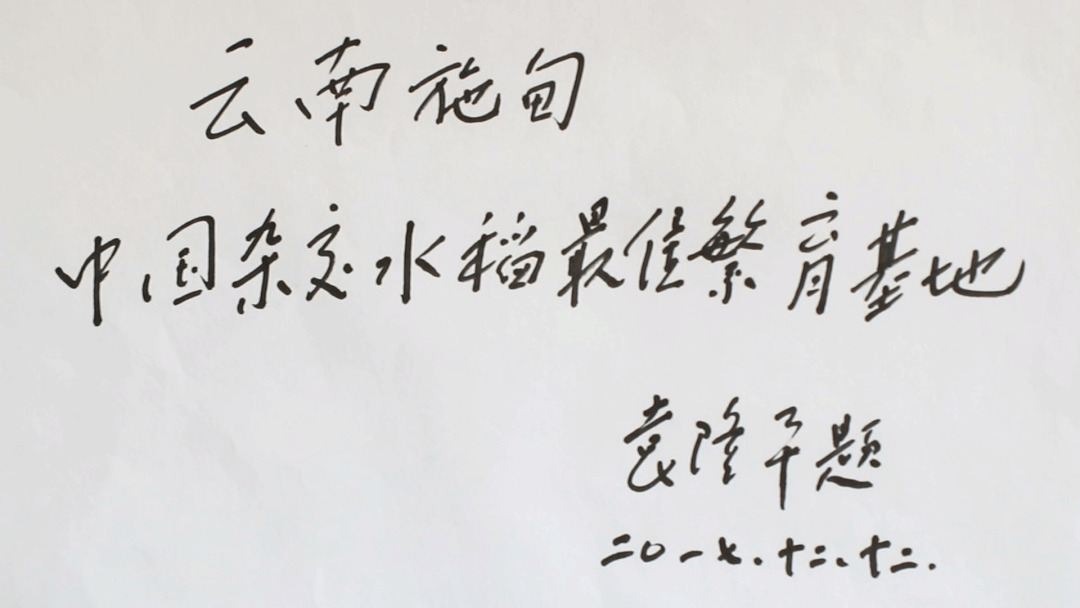 云南施甸
中国杂交水稻最佳繁育基地
袁隆平题
二〇一七.十二.十二.